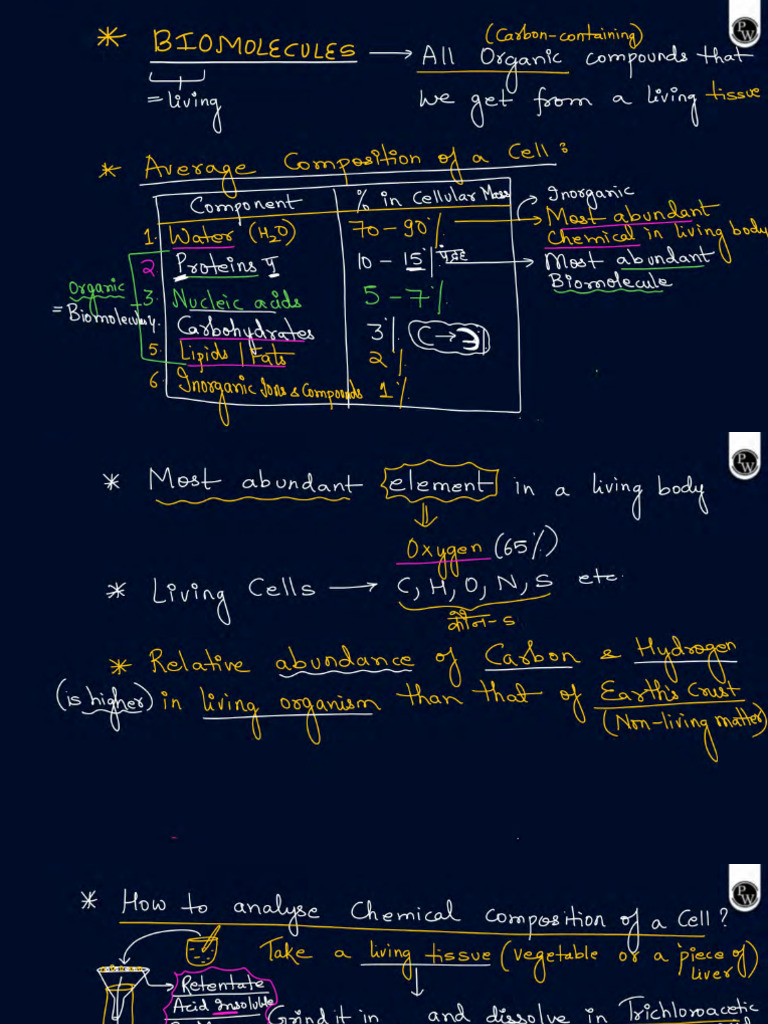 PW
* BIOMOLECULES → All Organic compounds that
(Carbon-containing)
= living
we get from a living tissue
* Average Composition of a Cell:
Component % in Cellular Mass
1. Water (H₂O) 70 – 90%
→ Inorganic
→ Most abundant
Chemical in living body
2. Proteins 10 – 15%
→ Most abundant
Biomolecule
Organic
= Biomolecules
3. Nucleic acids 5 – 7%
4. Carbohydrates 3% C → 3
5. Lipids / Fats 2%
6. Inorganic Ions & Compounds 1%
PW
* Most abundant element in a living body
⇓
Oxygen (65%)
* Living Cells → C, H, O, N, S etc.
कौन-s
* Relative abundance of Carbon & Hydrogen
(is higher) in living organism than that of Earth's Crust
(Non-living matter)
PW
* How to analyse Chemical composition of a Cell?
Take a living tissue (vegetable or a piece of
liver)
Retentate
Acid Insoluble
Grind it in and dissolve in Trichloroacetic